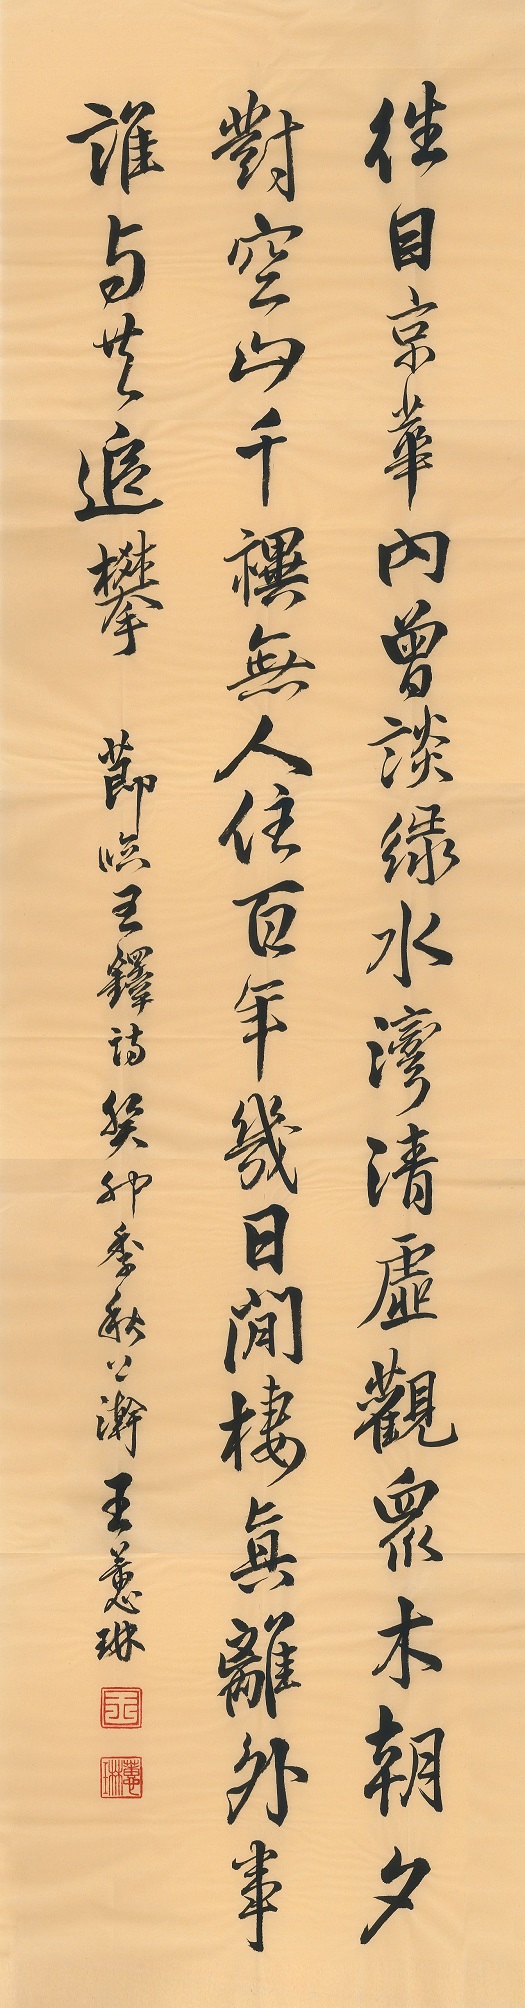 往目京華內曾談綠水灣清虛觀眾木朝夕
對空山千禩無人住百年幾日閒棲真離外事
誰与共追攀 節臨王鐸詩癸卯季秋上澣王蕙琳
王
蕙琳